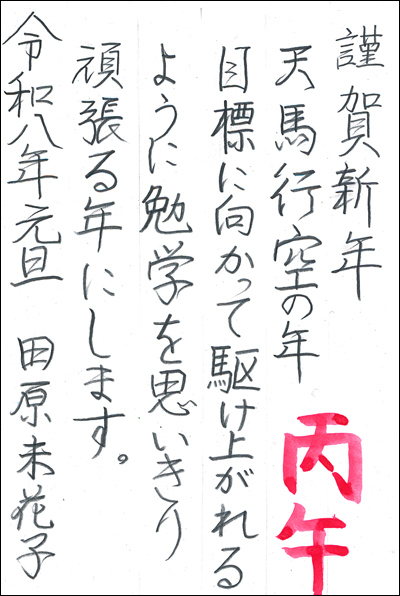 謹賀新年
天馬行空の年
丙午
目標に向かって駆け上がれる
ように勉学を思いきり
頑張る年にします。
令和八年元旦　田原未花子